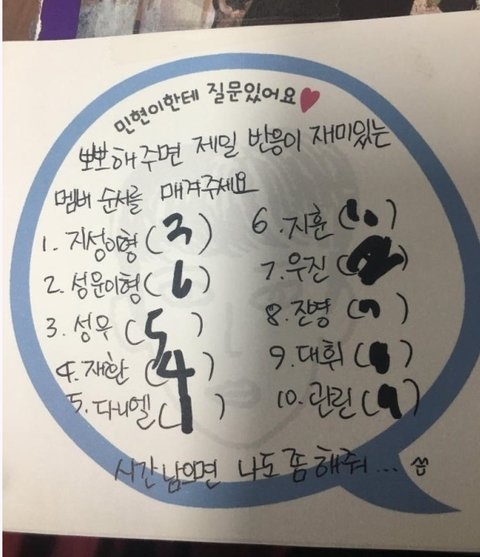 민현이한테 질문있어요
뽀뽀해주면 제일 반응이 재미있는
멤버 순서를 매겨주세요
1. 지성이형 (3)
2. 성운이형 (6)
3. 성우 (5)
4. 재환 (4)
5. 다니엘 (1)
6. 지훈 (10)
7. 우진 (2)
8. 진영 (7)
9. 대휘 (8)
10. 관린 (9)
시간 남으면 나도 좀 해줘...